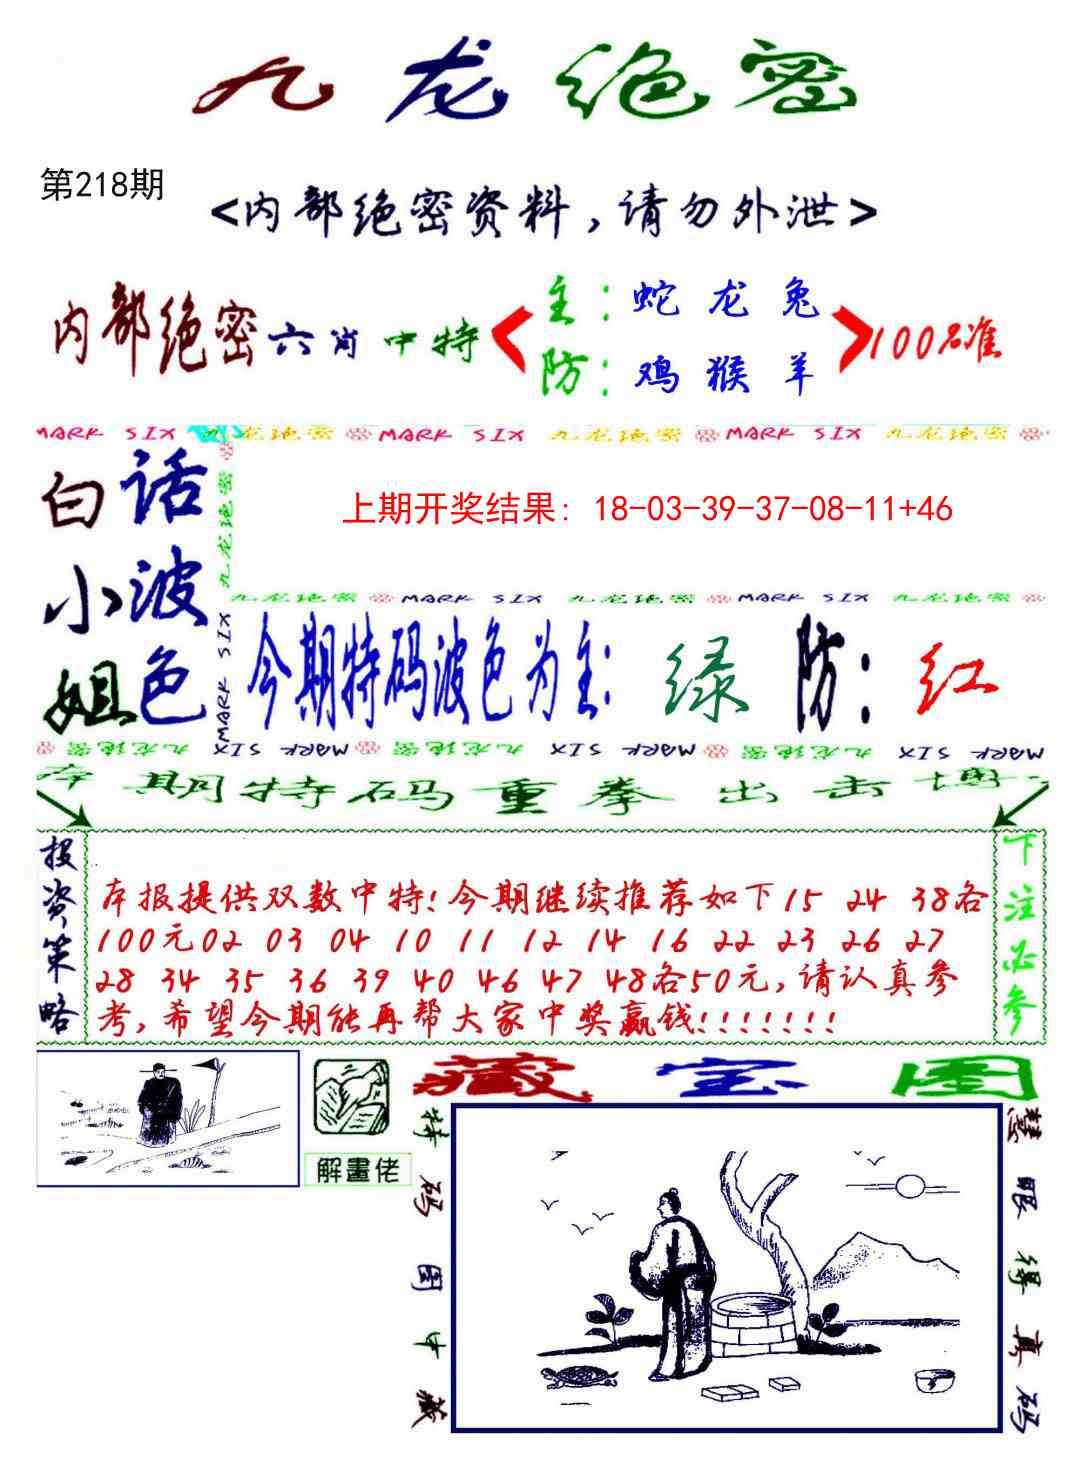 九龙绝密
第218期
<内部绝密资料,请勿外泄>
内部绝密六肖中特
主:蛇 龙 兔
防:鸡 猴 羊
100%准
MARK SIX 九龙绝密 MARK SIX 九龙绝密 MARK SIX 九龙绝密
白小姐
话波色
九龙绝密 MARK SIX
上期开奖结果: 18-03-39-37-08-11+46
九龙绝密 MARK SIX 九龙绝密 MARK SIX 九龙绝密
今期特码波色为主: 绿 防: 红
九龙绝密 MARK SIX 九龙绝密 MARK SIX 九龙绝密 MARK SIX
本期特码重拳出击博
投资策略
本报提供双数中特!今期继续推荐如下15 24 38各
100元02 03 04 10 11 12 14 16 22 23 26 27
28 34 35 36 39 40 46 47 48各50元,请认真参
考,希望今期能再帮大家中奖赢钱!!!!!!!
下注必参
解畫佬
藏宝图
特码图中藏
慧眼得真码